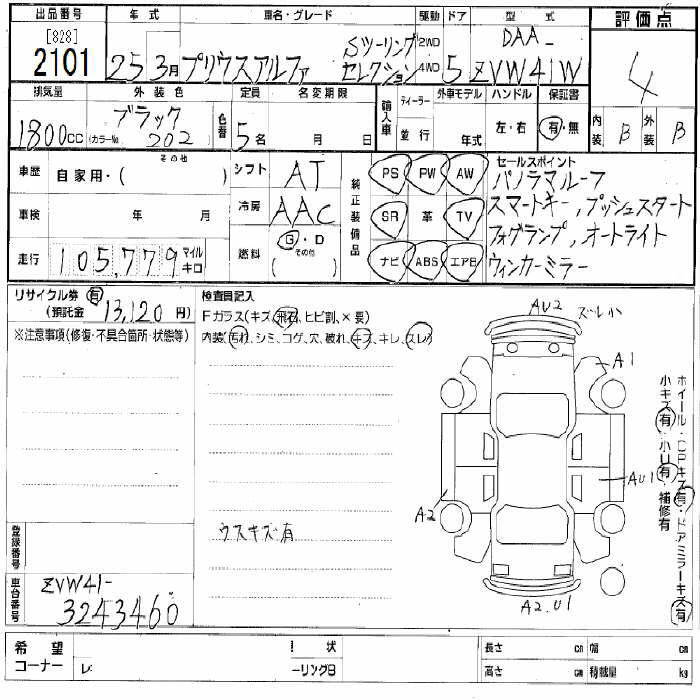 出品番号 年式 車名・グレード 駆動 ドア 型式 評価点
[828] 2101 25 3月 プリウスアルファ Sツーリング セレクション 2WD 4WD 5 DAA- ZVW41W 4
排気量 外装色 定員 名変期限 輸入車 ディーラー 外車モデル ハンドル 保証書
1800cc ブラック (カラーNo 202 色替 5名 月 日 並行 年式 左・右 有・無 内装 B 外装 B
車歴 自家用・( その他 ) シフト AT 純正装備品 PS PW AW セールスポイント
パノラマルーフ
車検 年 月 冷房 AAC SR 革 TV スマートキー,プッシュスタート
フォグランプ,オートライト
走行 105,779 マイル キロ 燃料 G・D ( その他 ) ナビ ABS エアB ウィンカーミラー
リサイクル券 有 (預託金 13,120 円)
※注意事項(修復・不具合箇所・状態等)
検査員記入
Fガラス(キズ,飛石,ヒビ割,×要)
内装(汚れ,シミ,コゲ,穴,破れ,キズ,キレ,スレ)
ウスキズ有
AU2 ズレ小
A1
AU1
A2
A2.U1
ホイール・CPキズ有・ドアミラーキズ有
小キズ有・小U有・補修有
登録番号
車台番号 ZVW41-
3243460
希望コーナー 長さ cm 幅 cm
高さ cm 積載量 kg